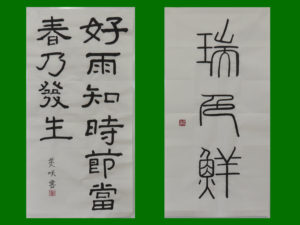 好雨知時節當
春乃發生
瑞色鮮